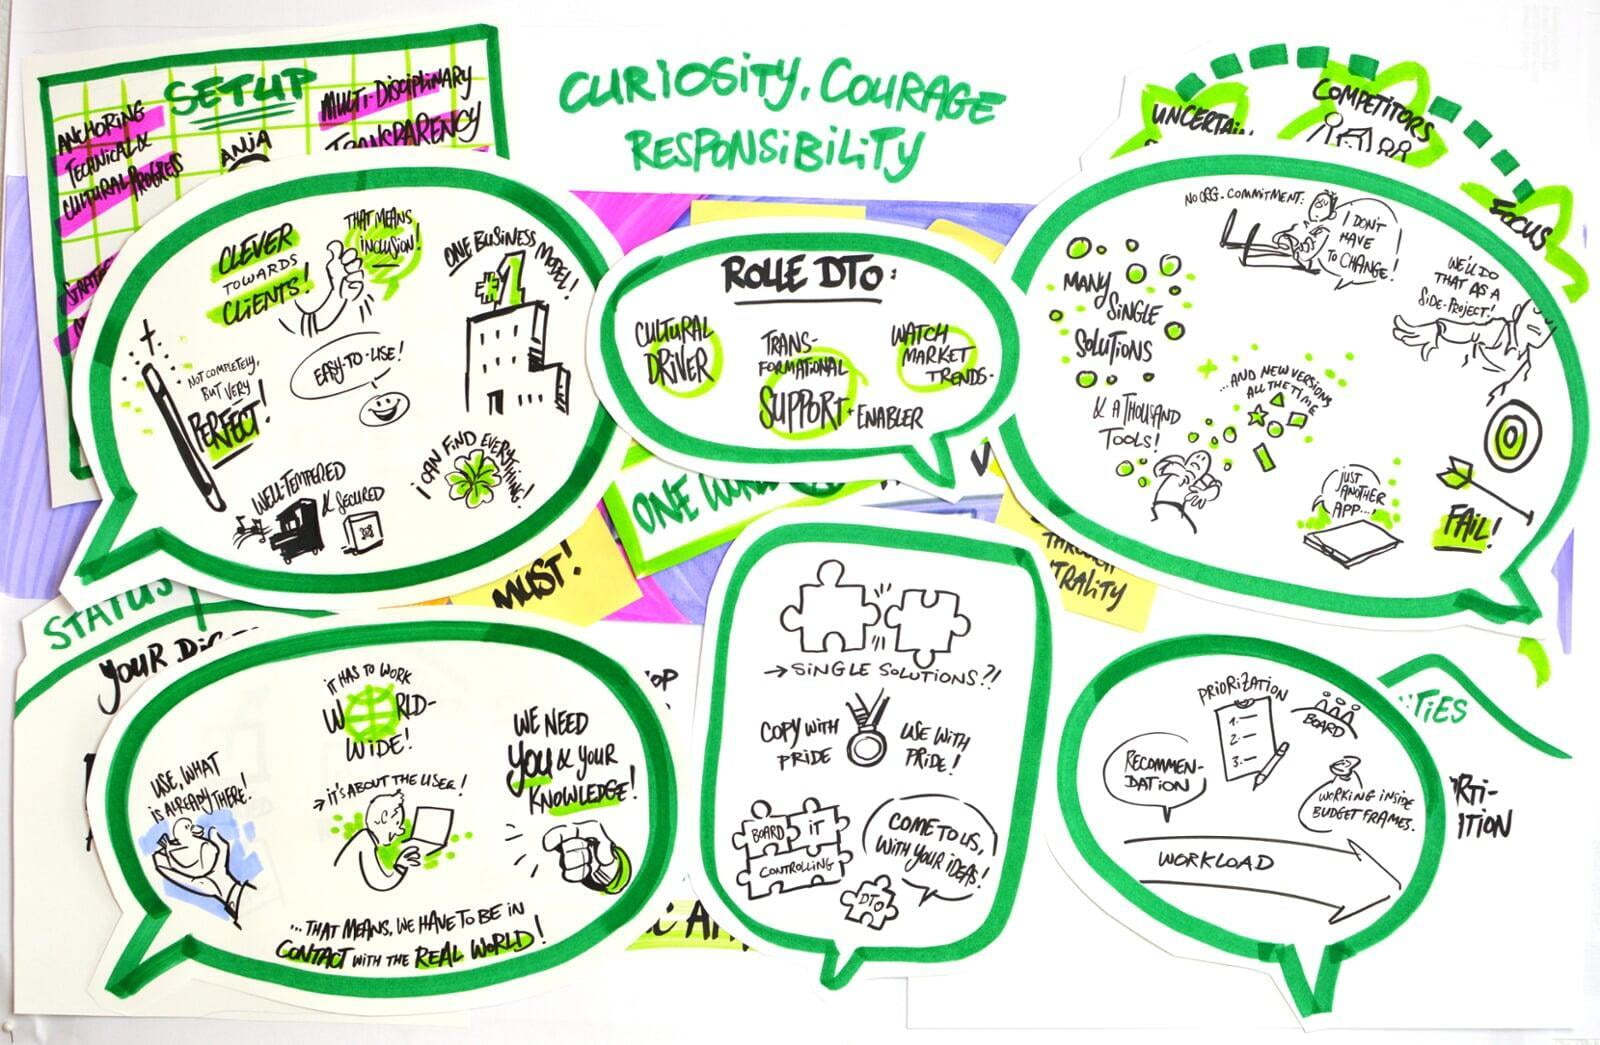 SETUP
ANCHORING
TECHNICAL &
CULTURAL PROGRESS
ANJA
MULTI-DISCIPLINARY
TRANSPARENCY
CURIOSITY, COURAGE
RESPONSIBILITY
UNCERTAIN
COMPETITORS
FOCUS
CLEVER
TOWARDS
CLIENTS!
THAT MEANS
INCLUSION!
ONE BUSINESS
MODEL!
1
NOT COMPLETELY,
BUT VERY
PERFECT!
EASY-TO-USE!
WELL-TEMPERED
& SECURED
I CAN FIND EVERYTHING!
ROLLE DTO:
CULTURAL
DRIVER
TRANS-
FORMATIONAL
SUPPORT + ENABLER
WATCH
MARKET
TRENDS.
NO ORG. COMMITMENT:
I DON'T
HAVE
TO CHANGE!
WE'LL DO
THAT AS A
SIDE-PROJECT!
MANY
SINGLE
SOLUTIONS
& A THOUSAND
TOOLS!
...AND NEW VERSIONS
ALL THE TIME
JUST
ANOTHER
APP...
FAIL!
ONE WORLD
MUST!
STATUS
YOUR
IT HAS TO WORK
WORLD-
WIDE!
USE, WHAT
IS ALREADY THERE!
→ IT'S ABOUT THE USER!
WE NEED
YOU & YOUR
KNOWLEDGE!
...THAT MEANS, WE HAVE TO BE IN
CONTACT WITH THE REAL WORLD!
→ SINGLE SOLUTIONS?!
COPY WITH
PRIDE
USE WITH
PRIDE!
BOARD
IT
CONTROLLING
DTO
COME TO US,
WITH YOUR IDEAS!
PRIORIZATION
1.
2.
3.
BOARD
RECOMMEN-
DATION
WORKING INSIDE
BUDGET FRAMES.
WORKLOAD